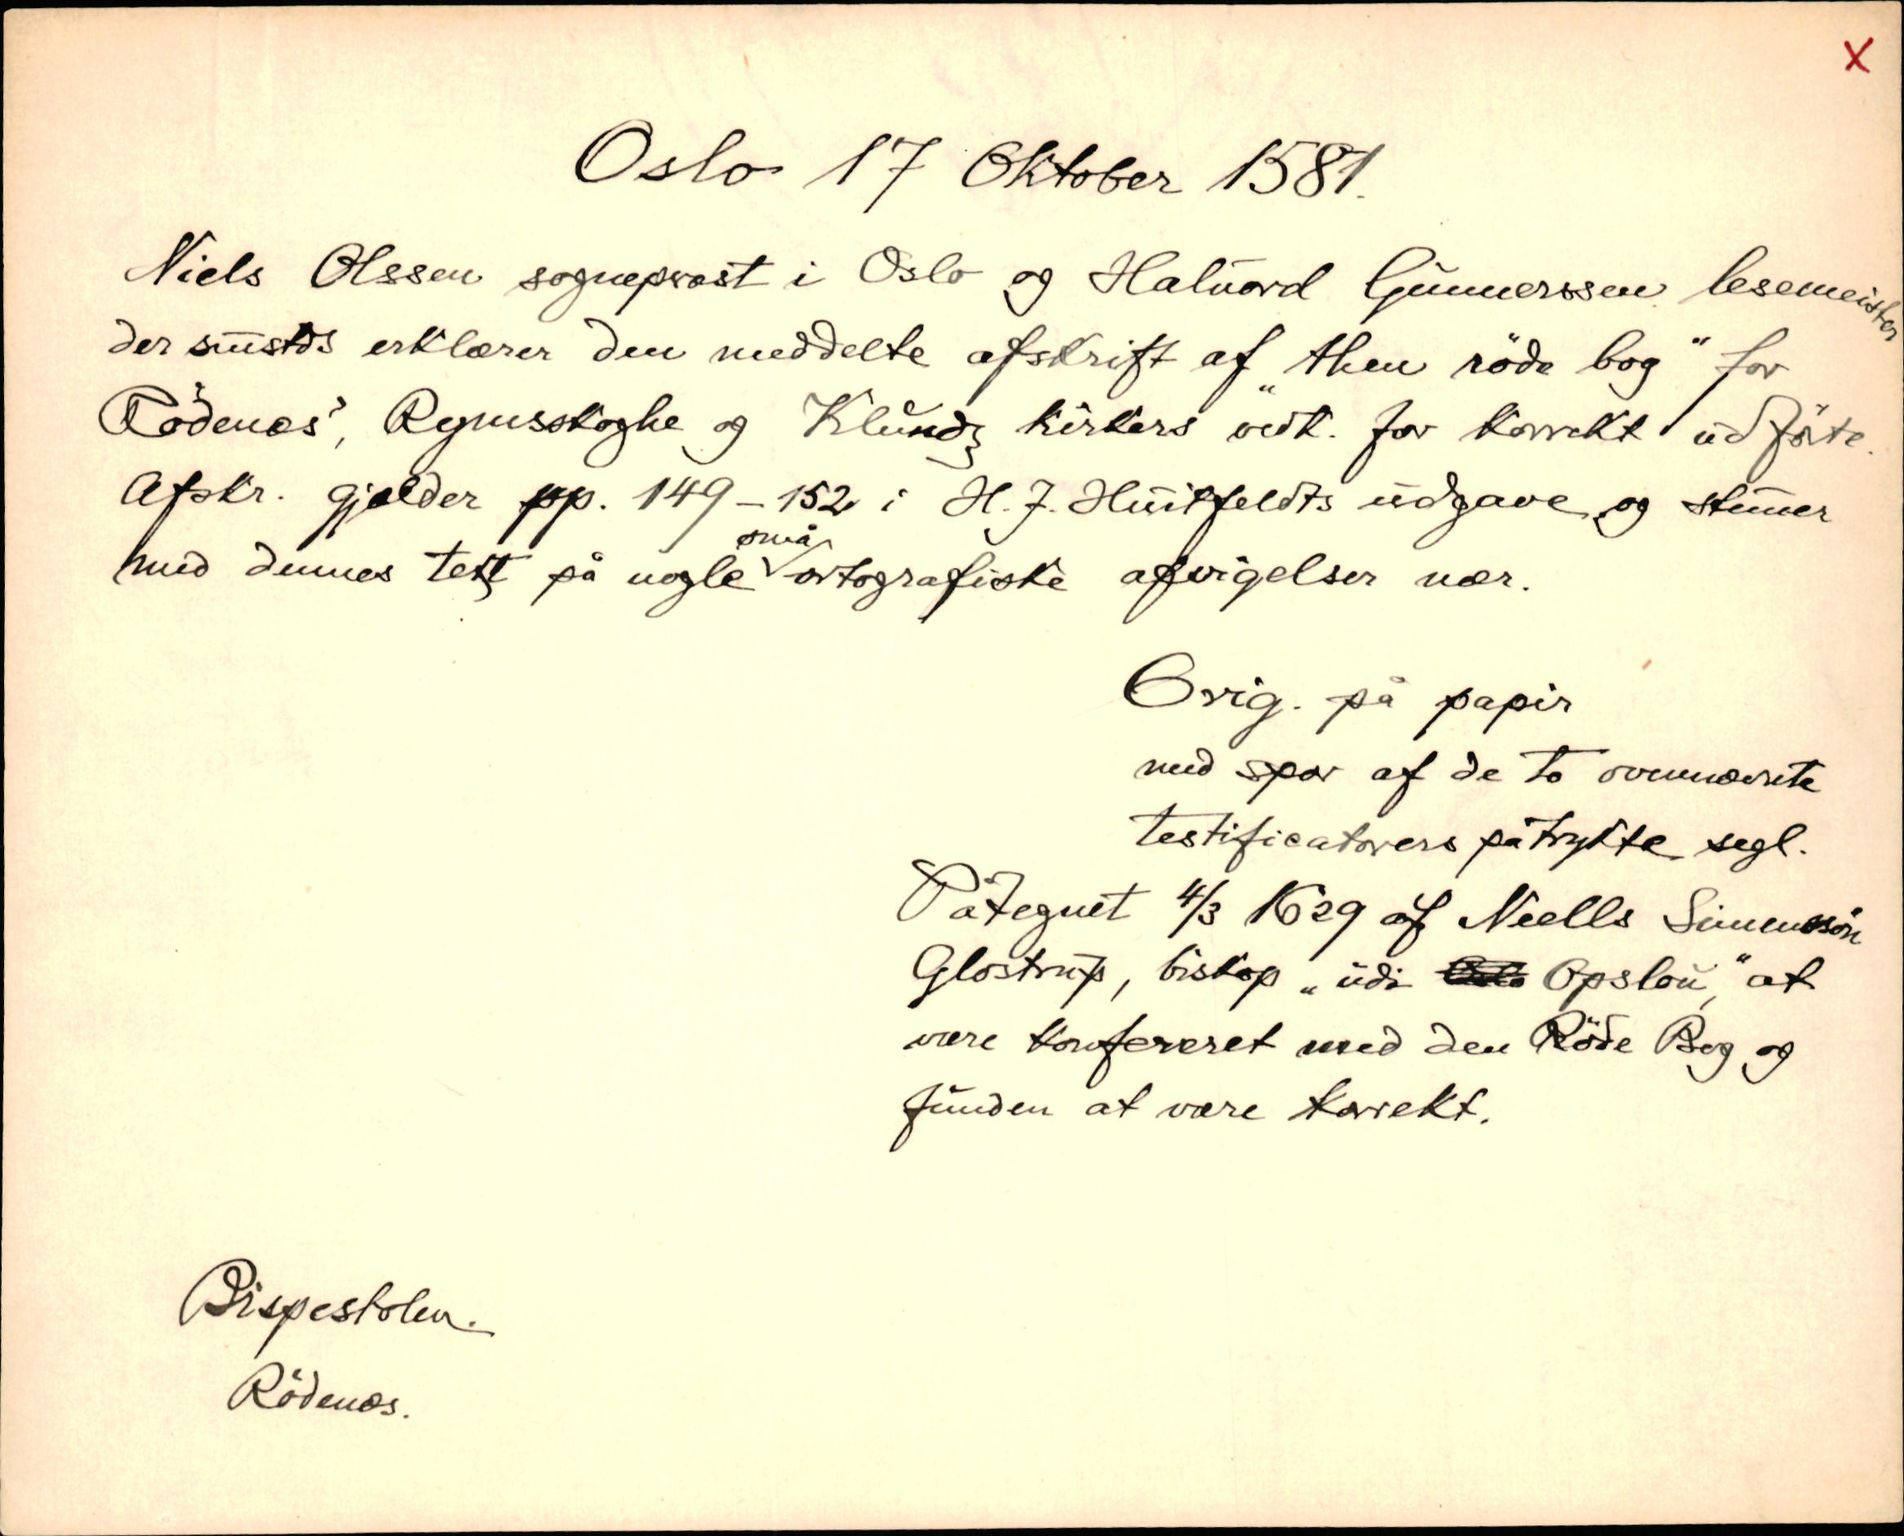 X
Oslo 17 Oktober 1581.
Niels Olssen sogneprost i Oslo og Haluord Gunnerssen lesemeister
der smstds erklærer den meddelte afskrift af "then röde bog" for
Rödenes', Rymsskoghe og Klundz kirkers vedk. for korrekt udförte.
Afskr. gjelder pp. 149-152 i H. J. Huitfeldts udgave og stemer
med dennes tekst på nogle små ortografiske afvigelser nær.
Orig. på papir
med spor af de to ovennævnte
testificatorers påtrykte segl.
Påtegnet 4/3 1629 af Niells Simenssön
Glostrup, biskop "udi Opslou," at
være konfereret med den Röde Bog og
funden at være korrekt.
Bispestolen.
Rödenes.